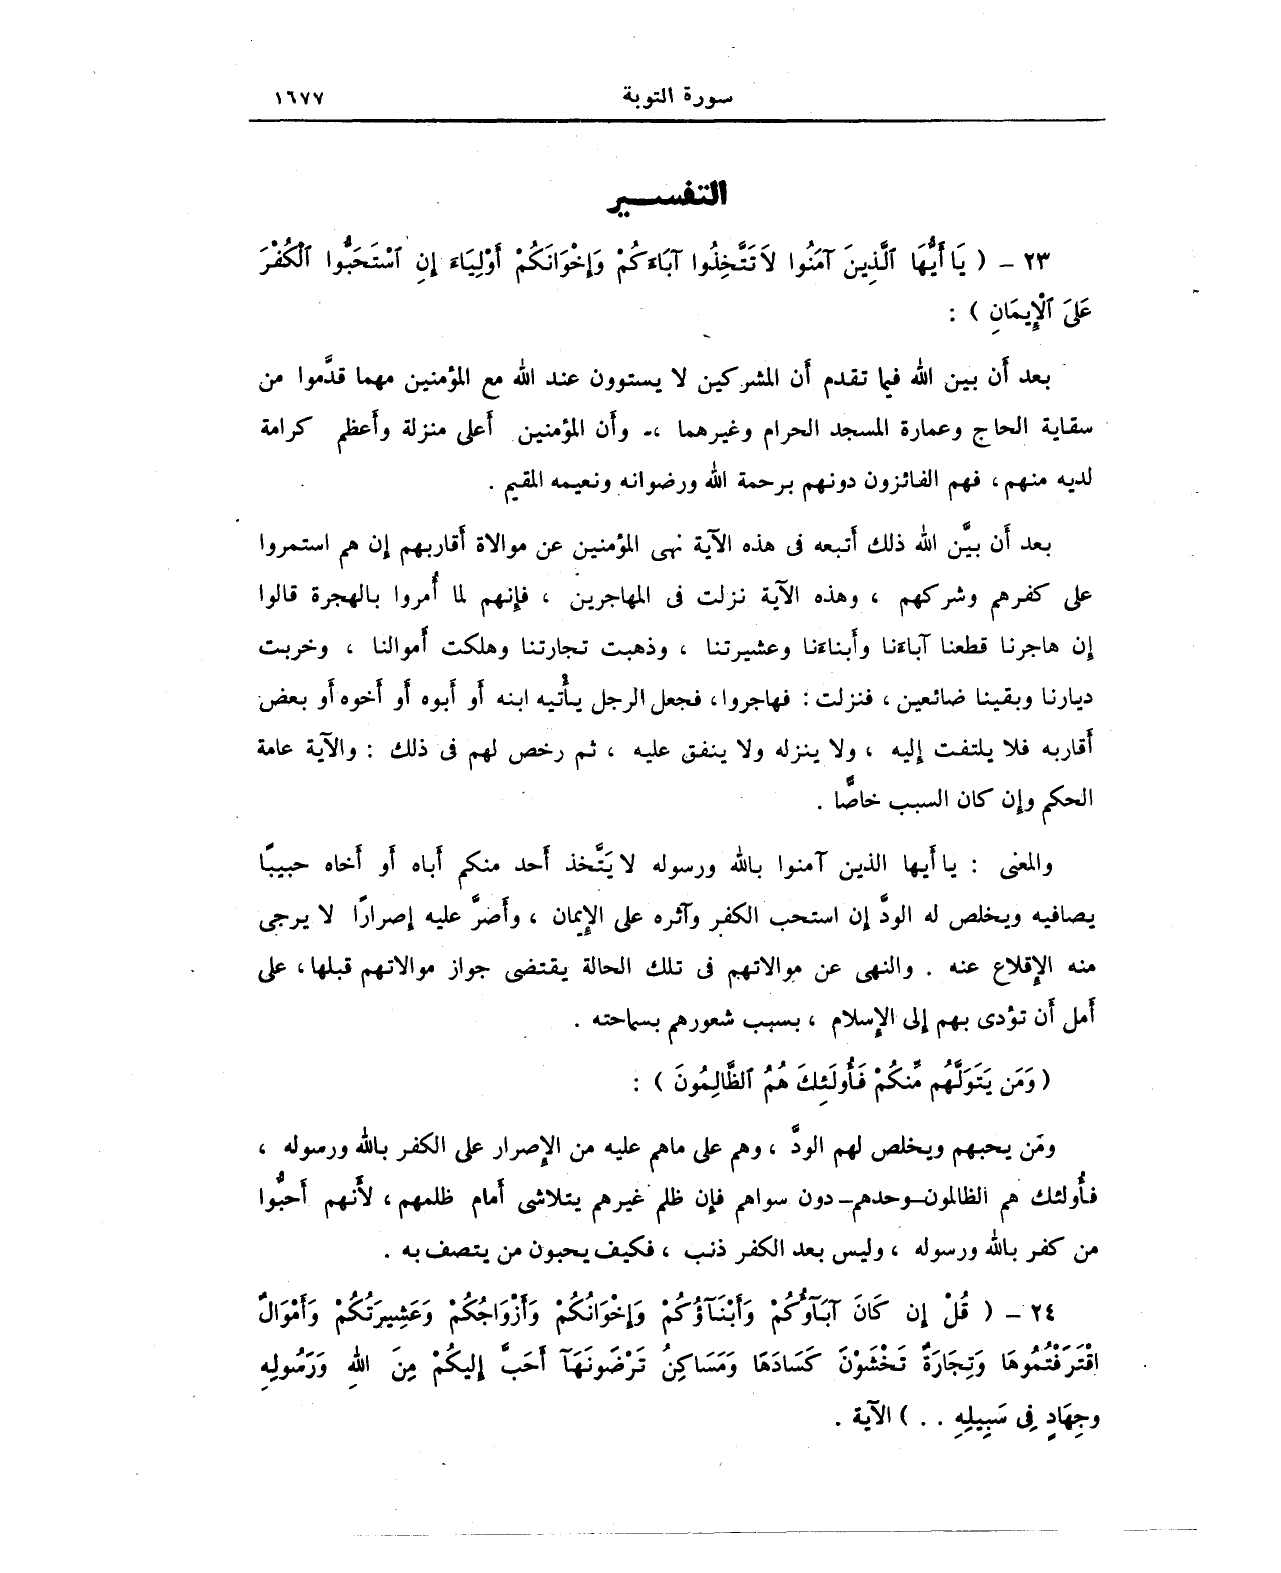 سورة التوبة ١٦٧٧
التفسير
٢٣ - ( يَا أَيُّهَا ٱلَّذِينَ آمَنُوا لاَ تَتَّخِذُوا آبَاءَكُمْ وَإِخْوَانَكُمْ أَوْلِيَاءَ إِنِ ٱسْتَحَبُّوا ٱلْكُفْرَ
عَلَى ٱلْإِيمَانِ ) :
بعد أن بين الله فيما تقدم أن المشركين لا يستوون عند الله مع المؤمنين مهما قدَّموا من
سقاية الحاج وعمارة المسجد الحرام وغيرهما ،- وأن المؤمنين أعلى منزلة وأعظم كرامة
لديه منهم ، فهم الفائزون دونهم برحمة الله ورضوانه ونعيمه المقيم .
بعد أن بيَّن الله ذلك أتبعه فى هذه الآية نهى المؤمنين عن موالاة أقاربهم إن هم استمروا
على كفرهم وشركهم ، وهذه الآية نزلت فى المهاجرين ، فإنهم لما أُمروا بالهجرة قالوا
إن هاجرنا قطعنا آباءَنا وأبناءَنا وعشيرتنا ، وذهبت تجارتنا وهلكت أموالنا ، وخربت
ديارنا وبقينا ضائعين ، فنزلت : فهاجروا ، فجعل الرجل يأْتيه ابنه أو أبوه أو أخوه أو بعض
أقاربه فلا يلتفت إليه ، ولا ينزله ولا ينفق عليه ، ثم رخص لهم فى ذلك : والآية عامة
الحكم وإن كان السبب خاصًّا .
والمعنى : يا أيها الذين آمنوا بالله ورسوله لا يَتَّخذ أحد منكم أباه أو أخاه حبيبًا
يصافيه ويخلص له الودَّ إن استحب الكفر وآثره على الإيمان ، وأصرَّ عليه إصرارًا لا يرجى
منه الإقلاع عنه . والنهى عن موالاتهم فى تلك الحالة يقتضى جواز موالاتهم قبلها ، على
أمل أن تؤدى بهم إلى الإسلام ، بسبب شعورهم بسماحته .
( وَمَن يَتَوَلَّهُم مِّنكُمْ فَأُولَئِكَ هُمُ ٱلظَّالِمُونَ ) :
ومَن يحبهم ويخلص لهم الودَّ ، وهم على ماهم عليه من الإصرار على الكفر بالله ورسوله ،
فأُولئك هم الظالمون-وحدهم-دون سواهم فإن ظلم غيرهم يتلاشى أمام ظلمهم ، لأنهم أحبُّوا
من كفر بالله ورسوله ، وليس بعد الكفر ذنب ، فكيف يحبون من يتصف به .
٢٤ - ( قُلْ إِن كَانَ آبَآؤُكُمْ وَأَبْنَآؤُكُمْ وَإِخْوَانُكُمْ وَأَزْوَاجُكُمْ وَعَشِيرَتُكُمْ وَأَمْوَالٌ
اقْتَرَفْتُمُوهَا وَتِجَارَةٌ تَخْشَوْنَ كَسَادَهَا وَمَسَاكِنُ تَرْضَوْنَهَآ أَحَبَّ إِلَيكُمْ مِنَ اللهِ وَرَسُولِهِ
وجِهَادٍ فِى سَبِيلِهِ . . ) الآية .